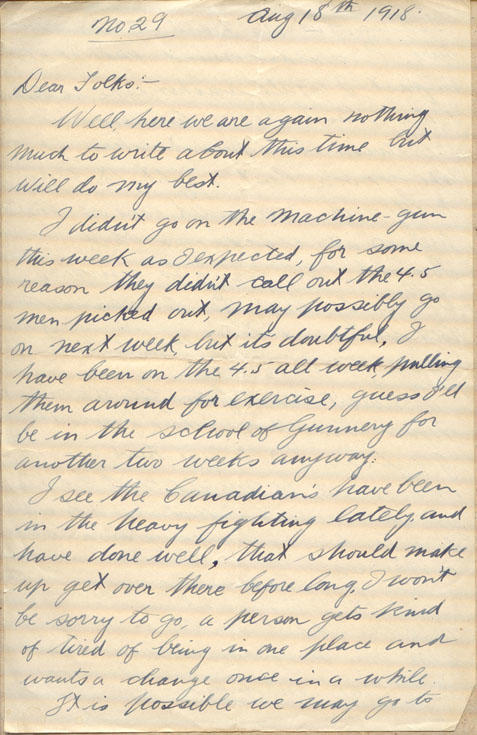 No. 29 Aug 18th 1918.
Dear Folks:-
Well here we are again nothing
much to write about this time but
will do my best.
I didn't go on the machine-gun
this week as I expected, for some
reason they didn't call out the 4.5
men picked out, may possibly go
on next week, but its doubtful, I
have been on the 4.5 all week, pulling
them around for exercise, guess I'll
be in the school of Gunnery for
another two weeks anyway.
I see the Canadian's have been
in the heavy fighting lately, and
have done well, that should make
up get over there before long. I won't
be sorry to go, a person gets kind
of tired of being in one place and
wants a change once in a while.
It is possible we may go to